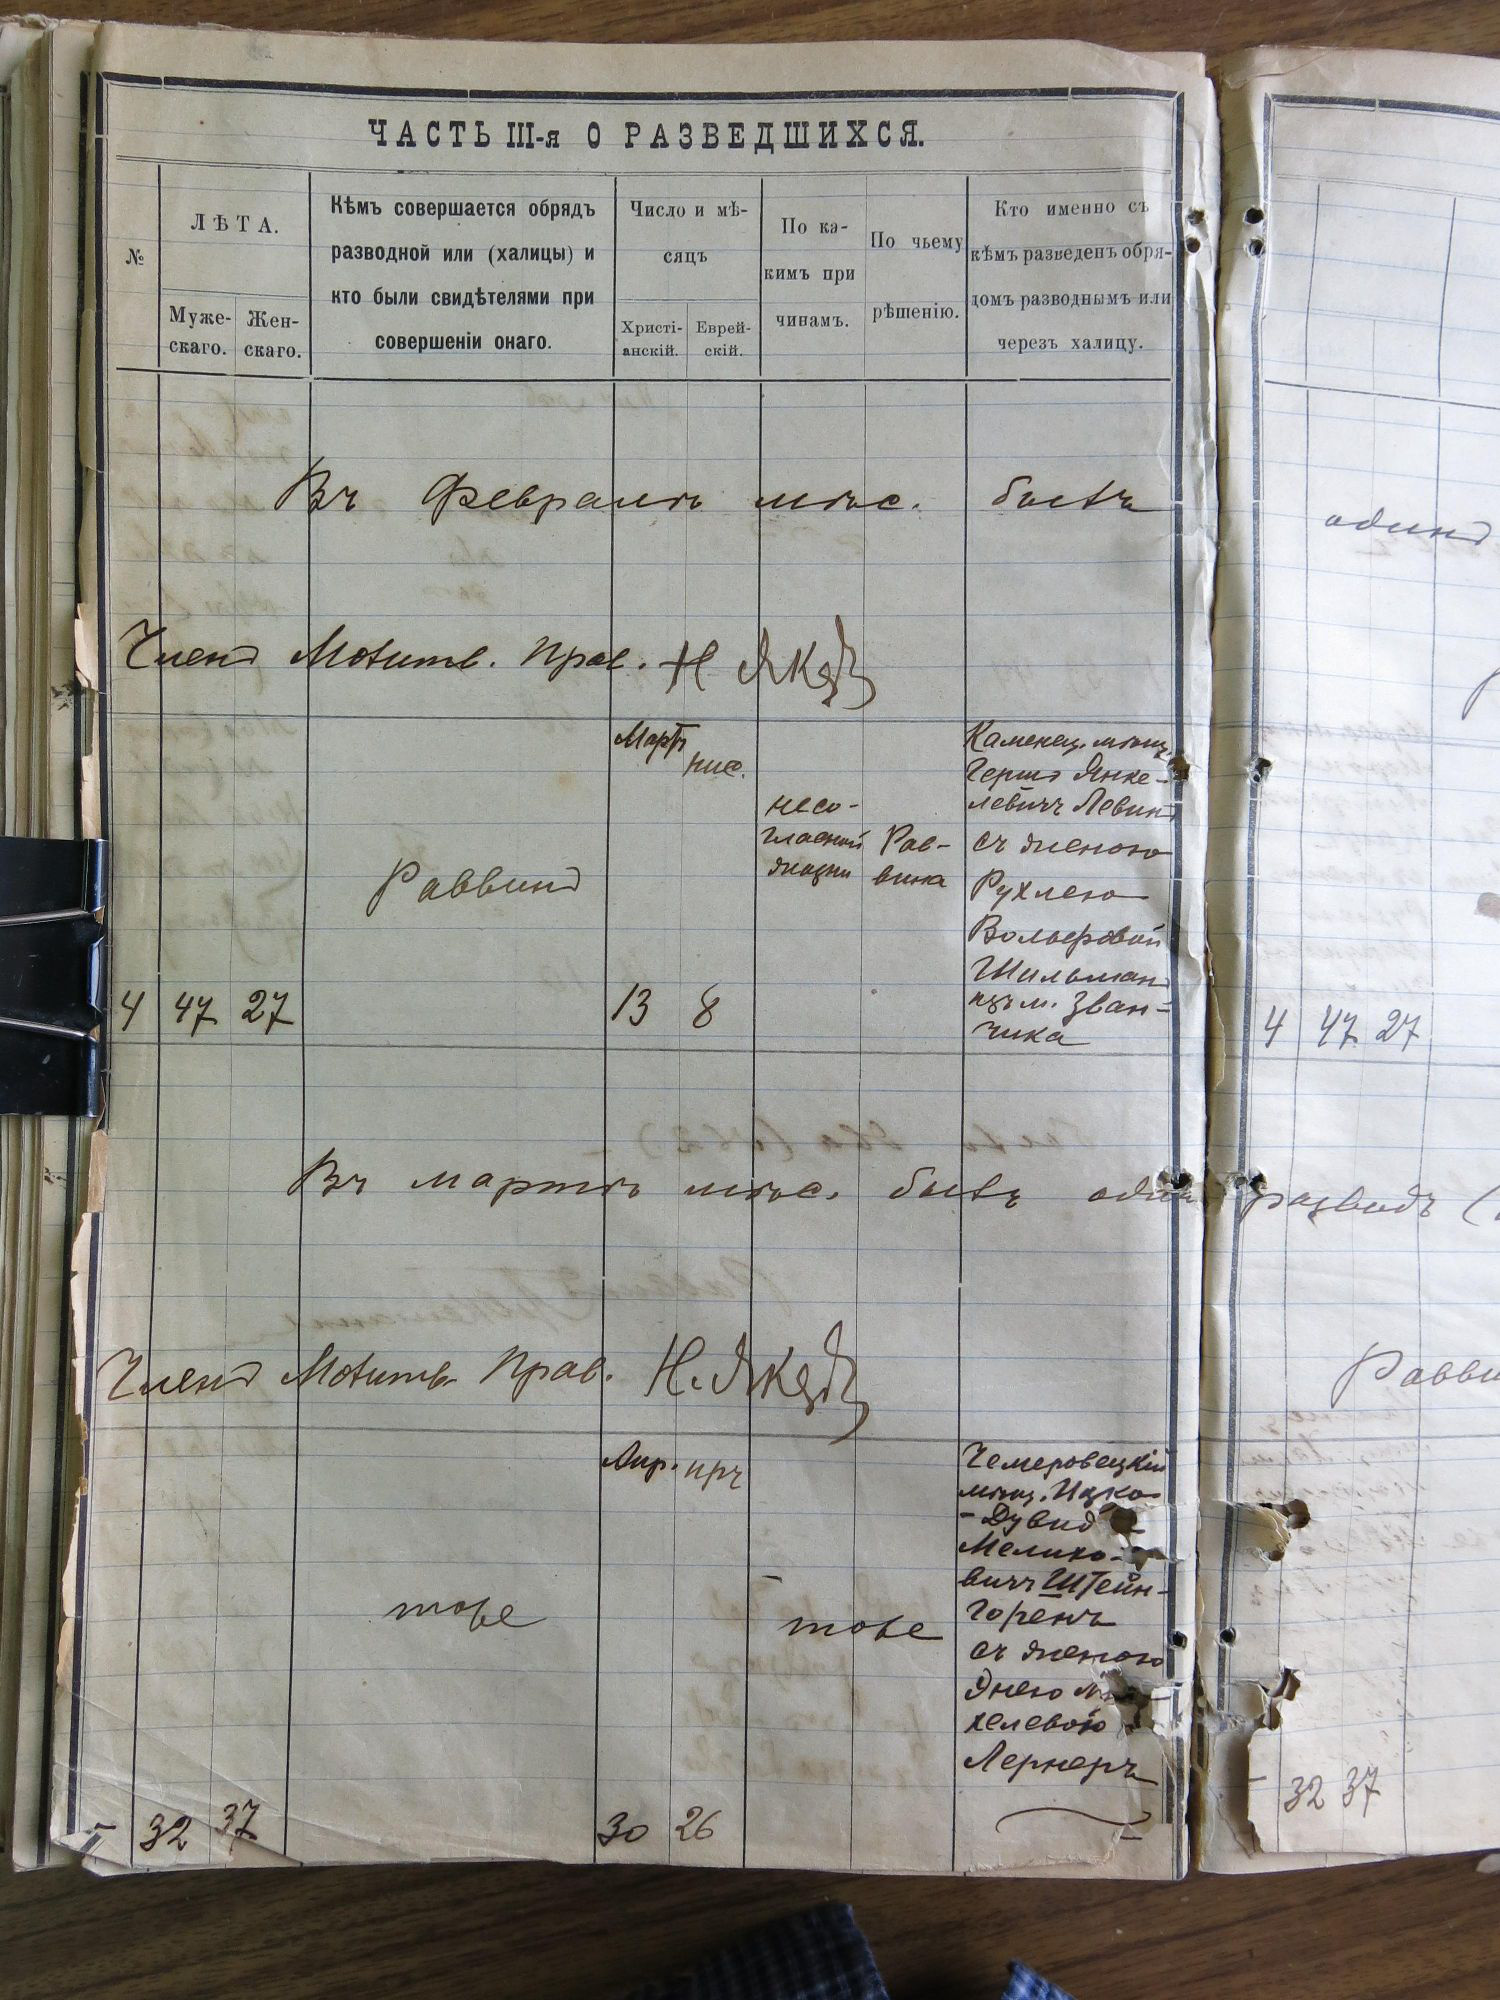 ЧАСТЬ III-я О РАЗВЕДШИХСЯ.
№
ЛѢТА.
Муже-
скаго.
Жен-
скаго.
Кѣмъ совершается обрядъ
разводной или (халицы) и
кто были свидѣтелями при
совершеніи онаго.
Число и мѣ-
сяцъ
Христі-
анскій.
Еврей-
скій.
По ка-
кимъ при
чинамъ.
По чьему
рѣшенію.
Кто именно съ
кѣмъ разведенъ обря-
домъ разводнымъ или
черезъ халицу.
Въ Февралѣ мѣс. былъ
Членъ Молитв. Прав. Н
Мартъ
нис.
несо-
гласной
жизни
Рав-
вина
Раввинъ
4 47 27 13 8
Каменец. мѣщ.
Гершъ Янке-
левичъ Левинъ
съ женою
Рухлею
Вольфовой
Шильман
изъ м. Зван-
чика
Въ мартѣ мѣс. былъ один
Членъ Молитв. Прав. Н.
Апр.
тоже
тоже
32 37 30 26
Чемеровецкій
мѣщ. Ицко-
-Дувид
вичъ Штейн-
горенъ
съ женою
хелевою
Лернеръ
одинъ
4 47 27
разводъ (
Равви
32 37